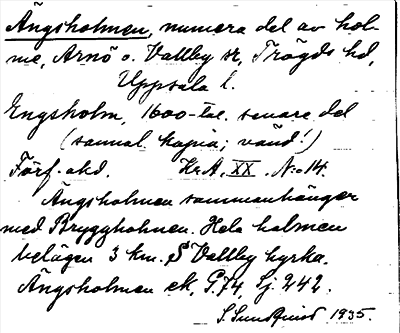 Ängsholmen, numera del av hol-
me, Arnö o. Vallby sr, Trögds hd,
Uppsala l.
Engsholm, 1600-tal. senare del
(samml. kopia; vänd!)
Förf. akd. Kr. A. XX. N:o 14.
Ängsholmen sammanhänger
med Bryggholmen. Hela holmen
belägen 3 km. S Vallby kyrka.
Ängsholmen ek. G. 74, Sj. 242.
S. Sundquist 1935.